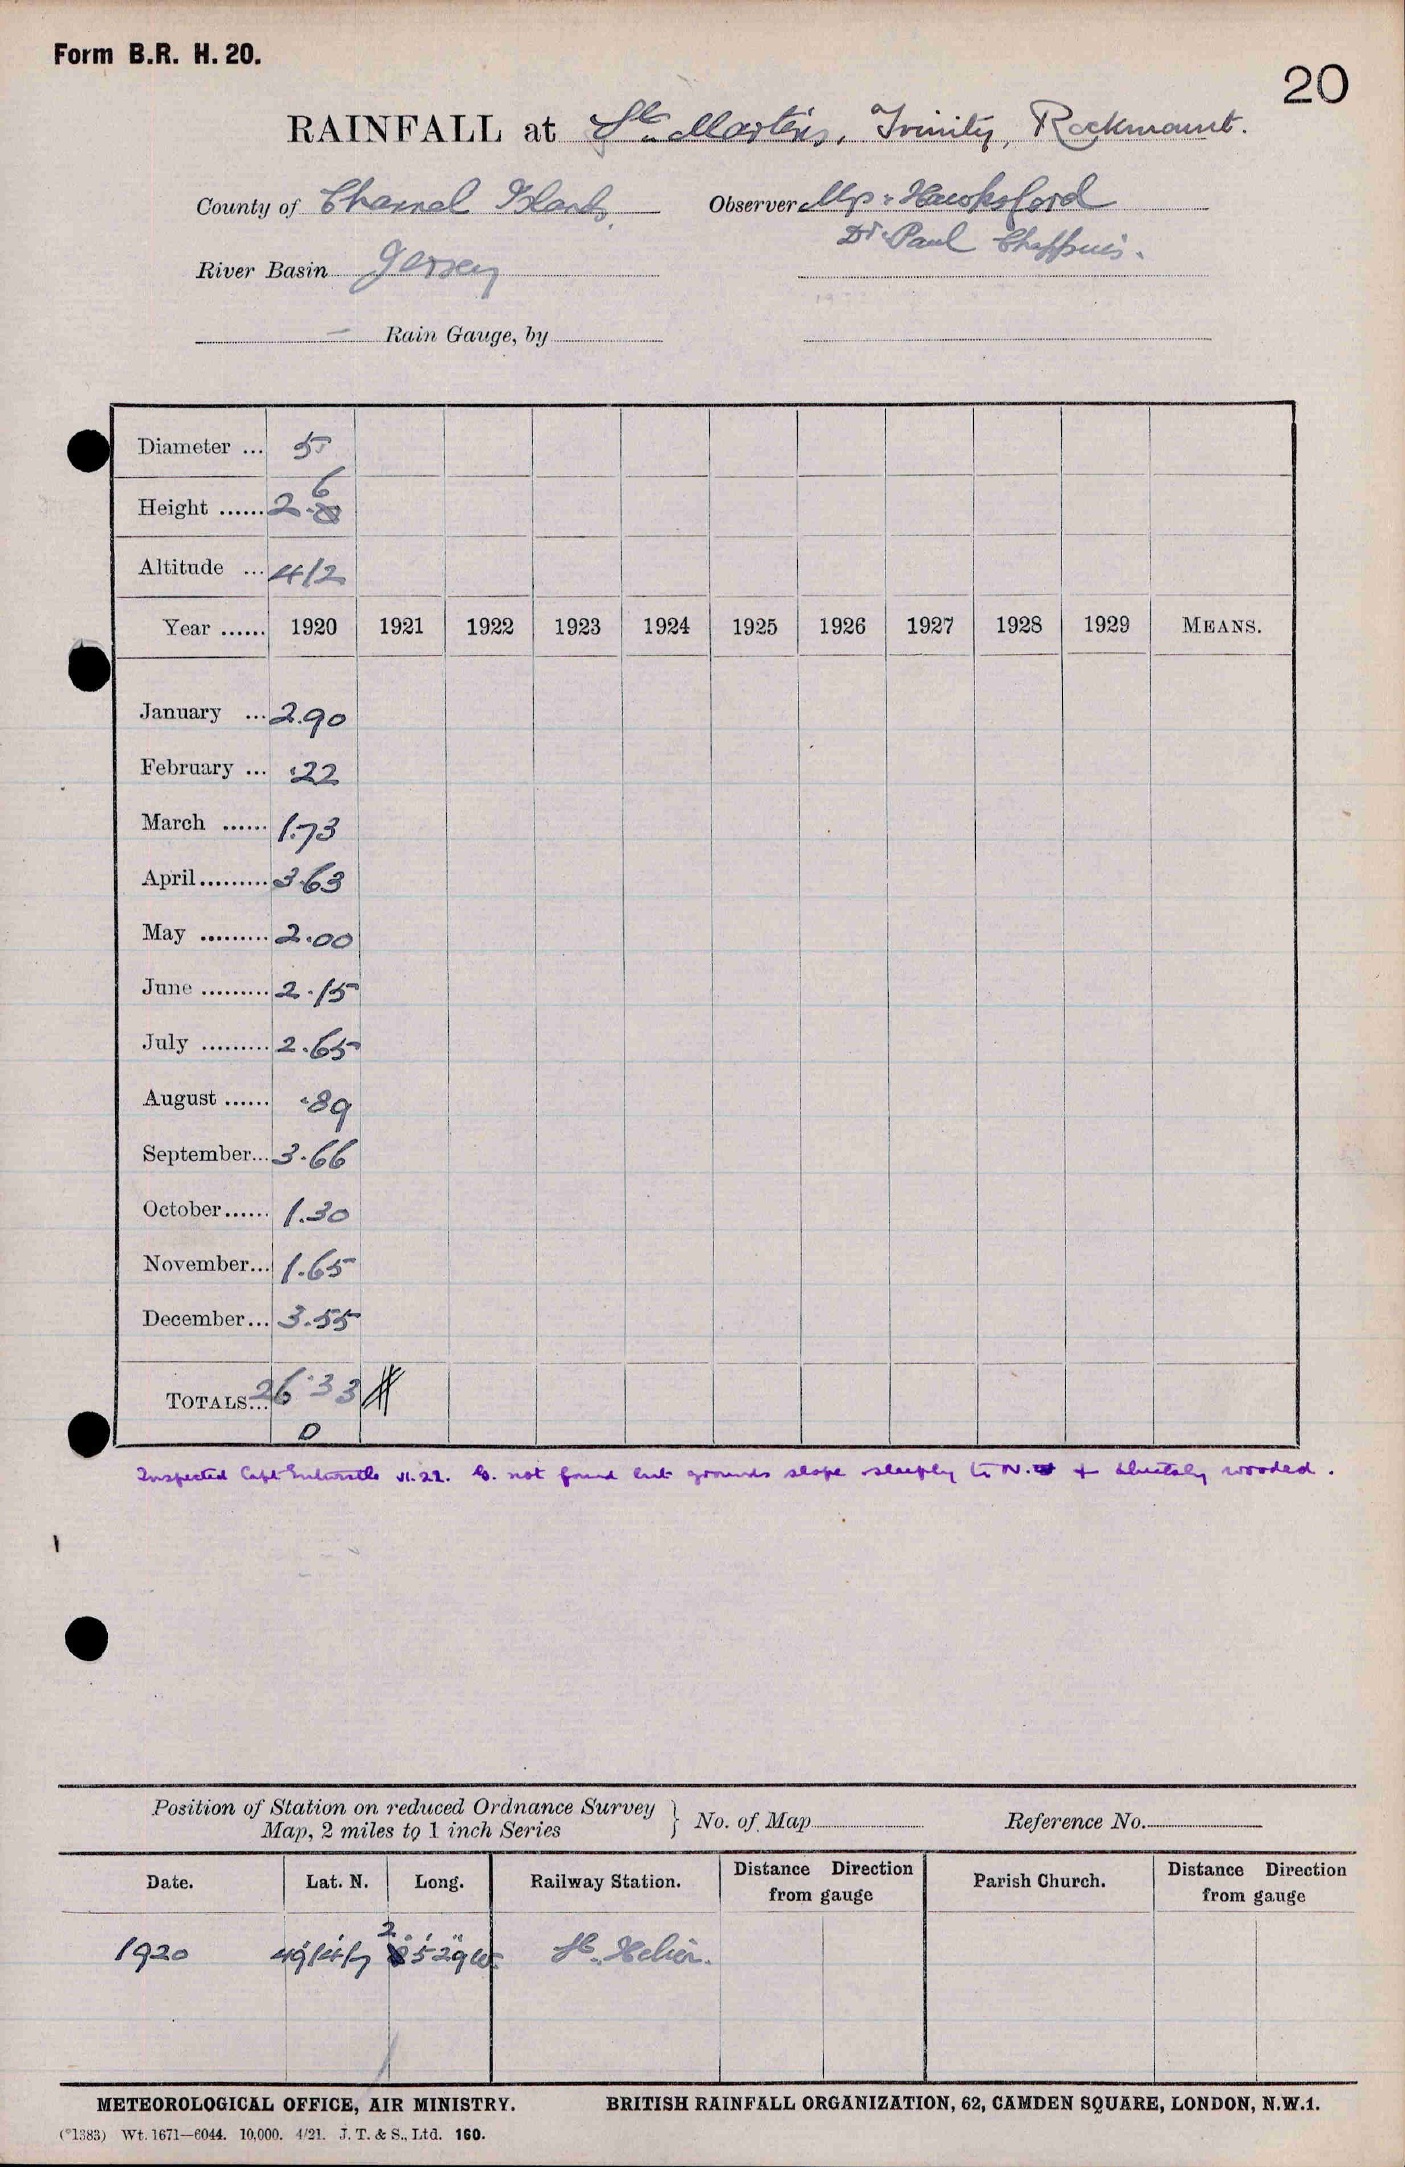 Form B.R. H. 20.
20
RAINFALL at St. Martins, Trinity, Rockmount.
County of Channel Islands. Observer Mrs. Hawksford
Dr. Paul Chappuis.
River Basin Jersey
— Rain Gauge, by
Diameter ... 5
Height ...... 2.6
Altitude ... 412
Year ...... 1920 1921 1922 1923 1924 1925 1926 1927 1928 1929 MEANS.
January ... 2.90
February ... .22
March ...... 1.73
April ......... 3.63
May ......... 2.00
June ......... 2.15
July ......... 2.65
August ...... .89
September... 3.66
October...... 1.30
November... 1.65
December... 3.55
TOTALS... 26.33
D
Inspected Capt VI.22. G. not found but grounds slope steeply to N. + thickly wooded.
Position of Station on reduced Ordnance Survey
Map, 2 miles to 1 inch Series } No. of Map Reference No.
Date. Lat. N. Long. Railway Station. Distance Direction from gauge Parish Church. Distance Direction from gauge
1920 49°14'17 2°5'29"W. St. Helier.
METEOROLOGICAL OFFICE, AIR MINISTRY. BRITISH RAINFALL ORGANIZATION, 62, CAMDEN SQUARE, LONDON, N.W.1.
(*1383) Wt. 1671—6044. 10,000. 4/21. J. T. & S., Ltd. 160.